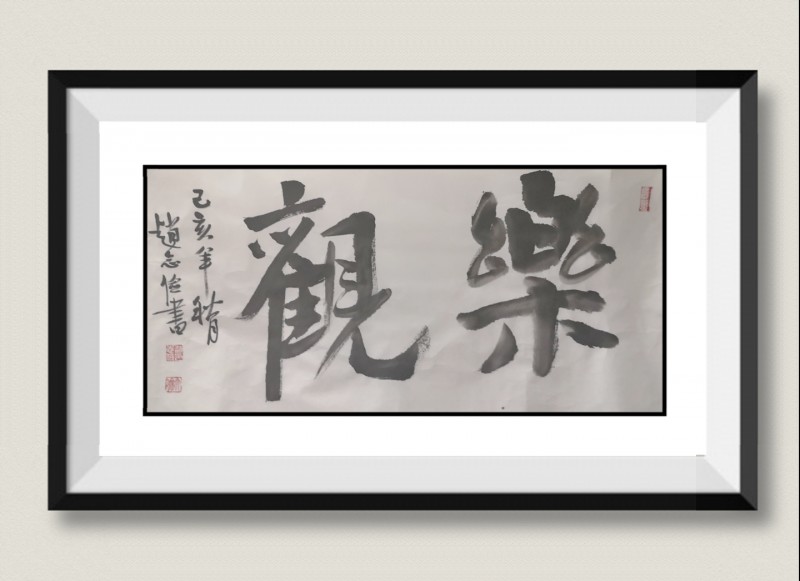 樂觀
己亥年秋月
趙志俭書